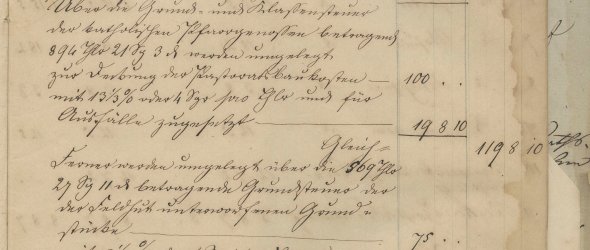 Über die Grund- und Klassensteuer
der katholischen Pfarrgenossen betragend
894 Thlr 21 Sg 3 d werden umgelegt
zur Deckung der Pastoratsbaukosten — 100 . .
mit 13⅓% oder 4 Sgr pro Thlr und für
Ausfälle zugesetzt — 19 8 10
119 8 10
Gleich-
Ferner werden umgelegt über die 569 Thlr
27 Sg 11 d betragende Grundsteuer der
der Feldhut unterworfenen Grund-
stücke — 75 . .